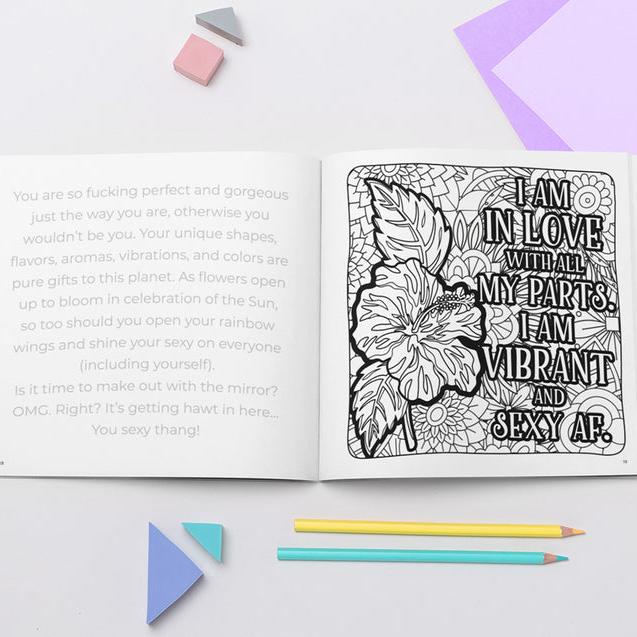 You are so fucking perfect and gorgeous
just the way you are, otherwise you
wouldn't be you. Your unique shapes,
flavors, aromas, vibrations, and colors are
pure gifts to this planet. As flowers open
up to bloom in celebration of the Sun,
so too should you open your rainbow
wings and shine your sexy on everyone
(including yourself).
Is it time to make out with the mirror?
OMG. Right? It's getting hawt in here...
You sexy thang!
I AM
IN LOVE
WITH ALL
MY PARTS.
I AM
VIBRANT
AND
SEXY AF.